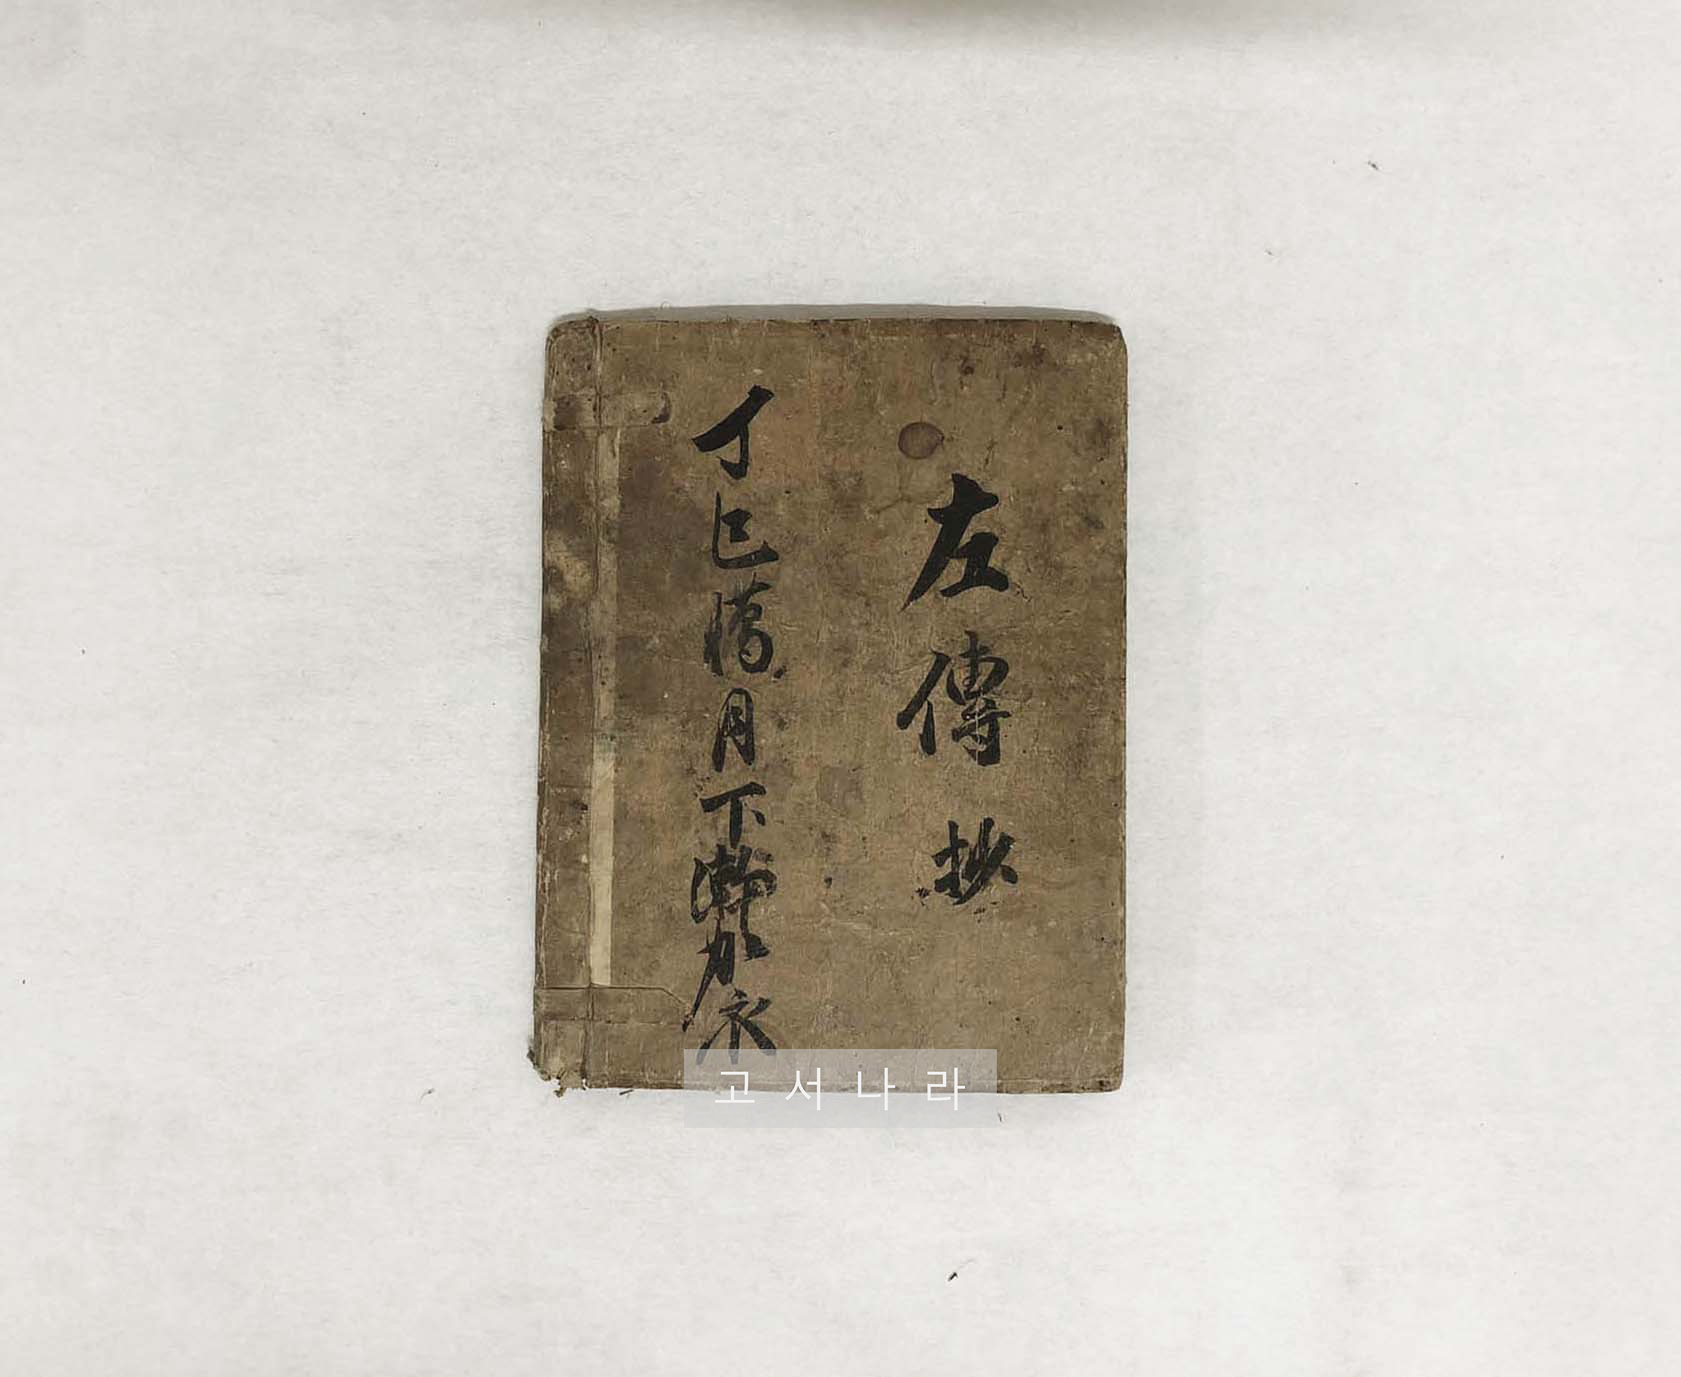 左傳抄
丁巳臘月下澣加衣
고서나라